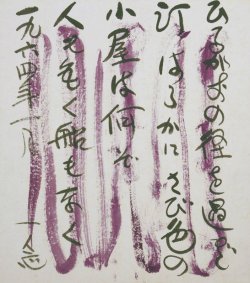 ひるがおの径を過ぎ
汀はろかにさび色の
小屋は何ぞ
人もなく船もなく
一九六四年一月